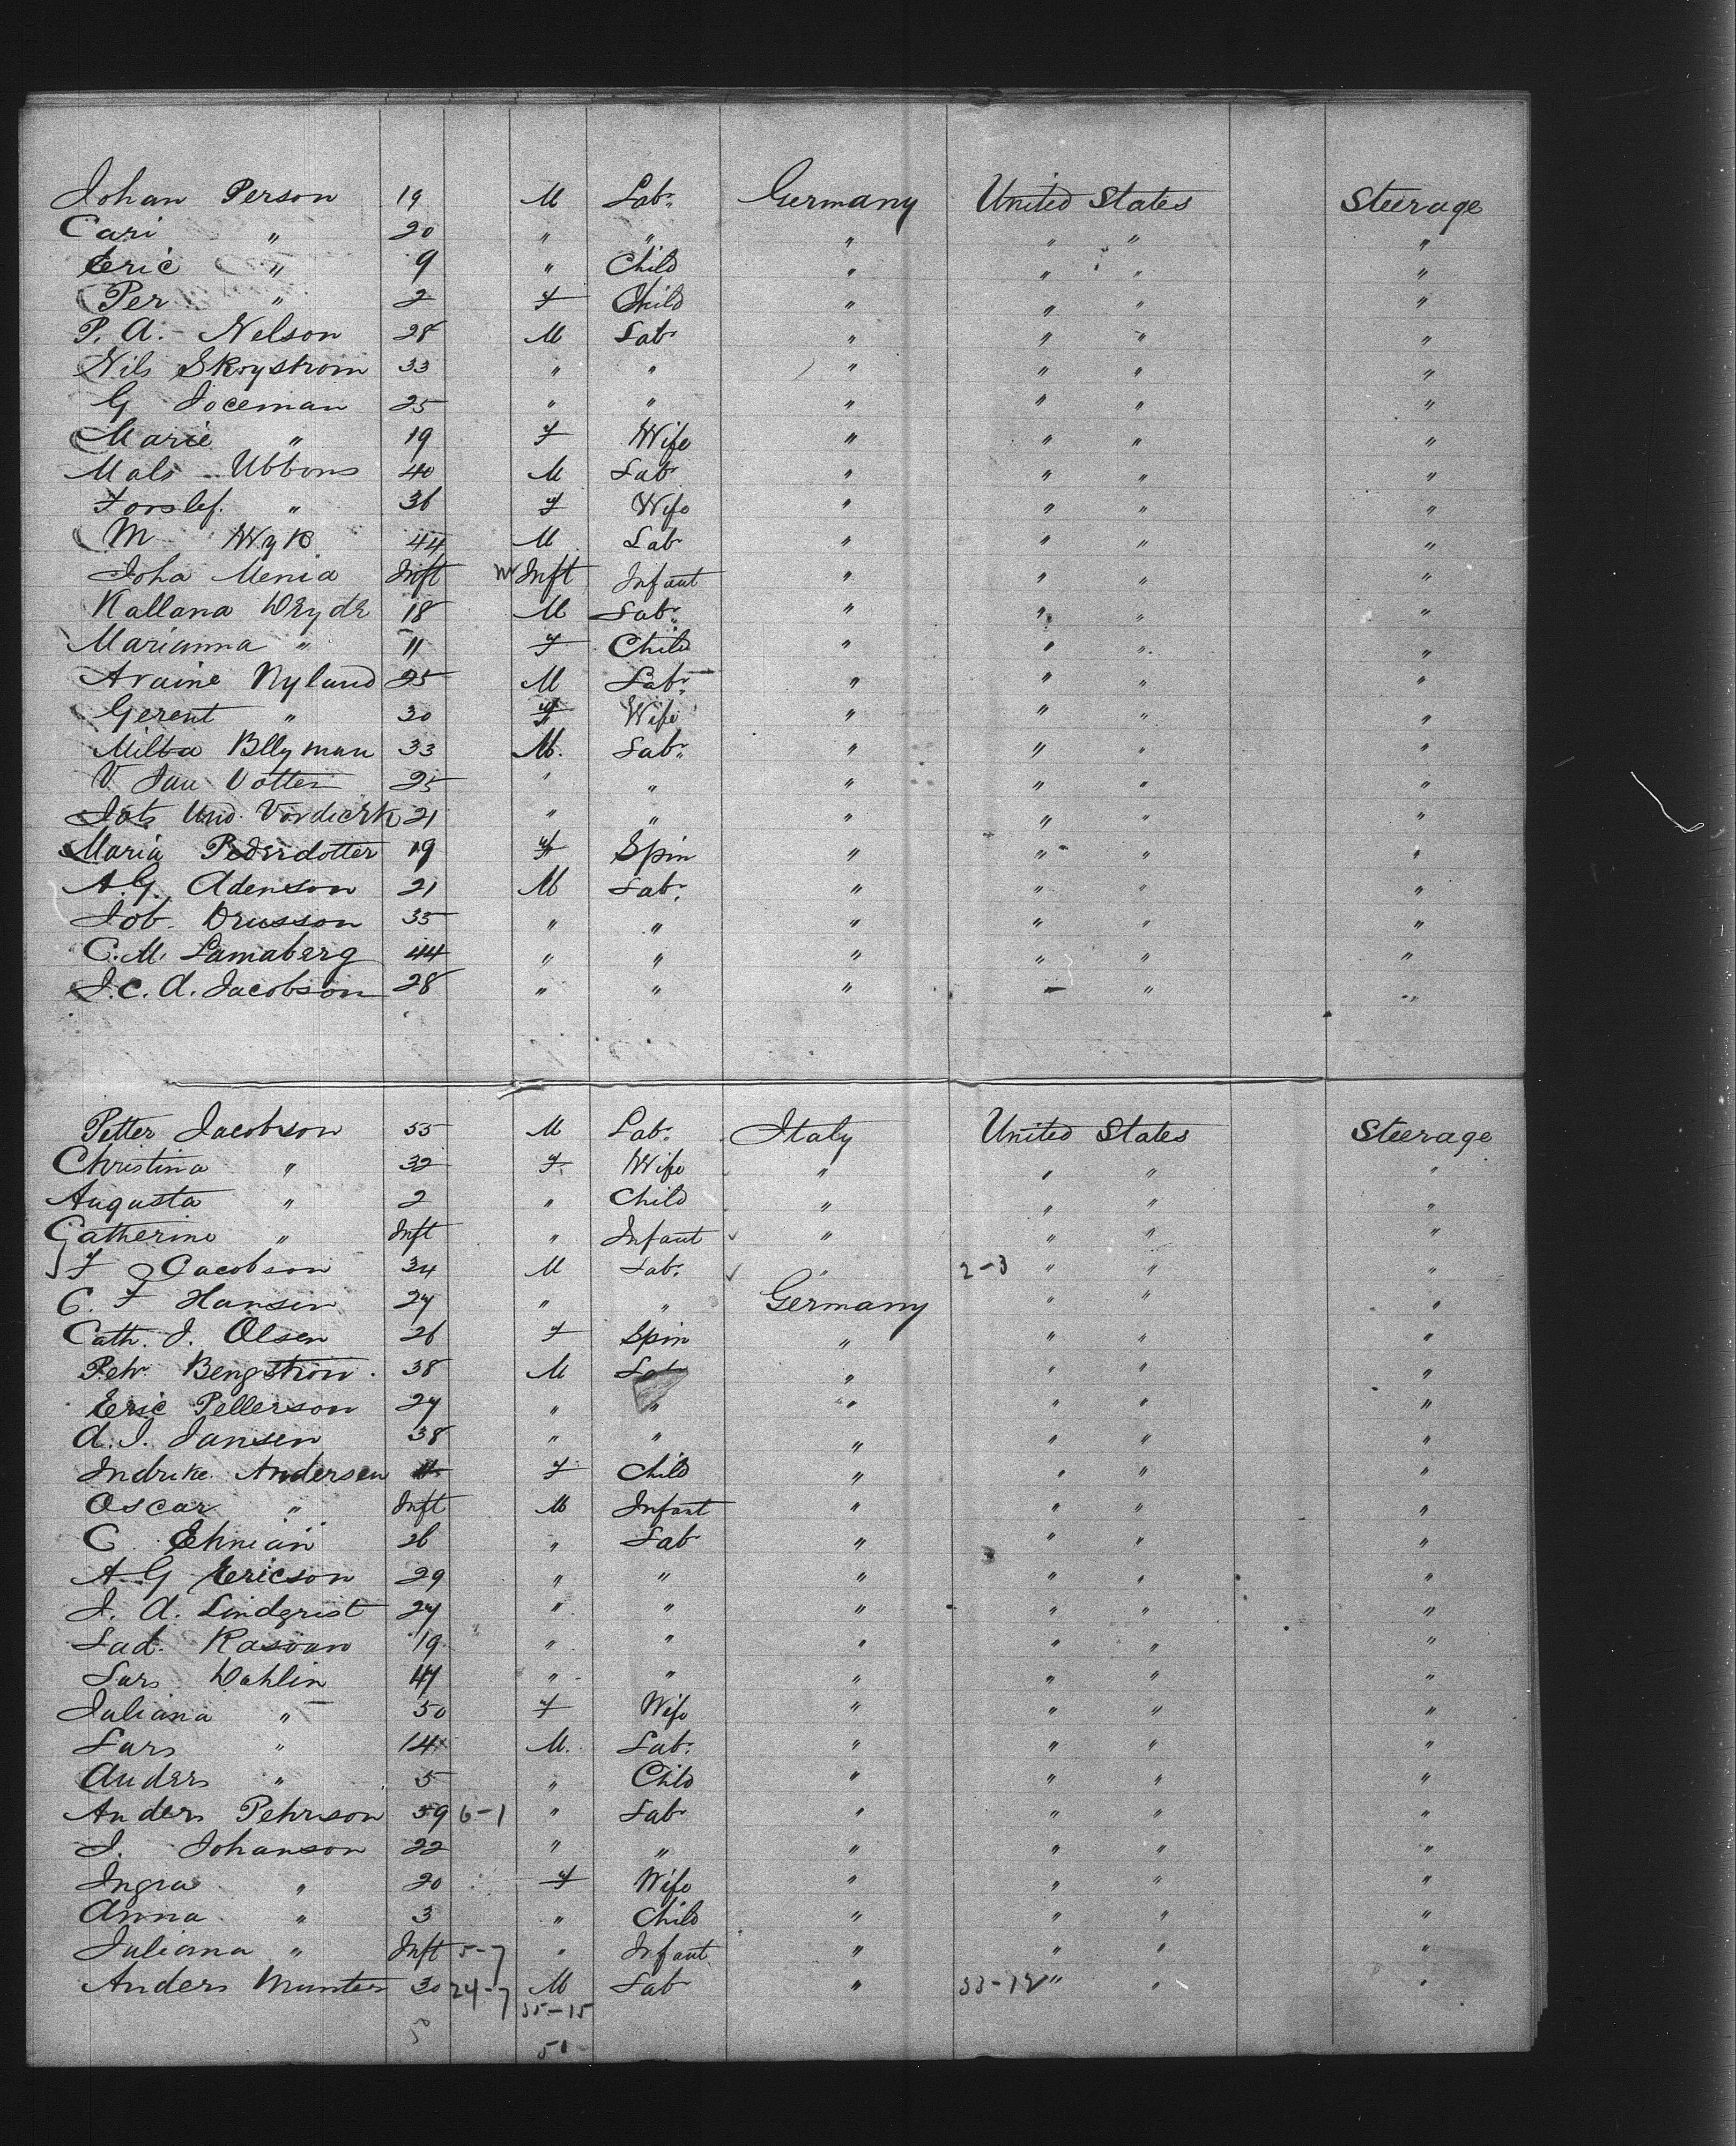 Johan Person 19 M Lab. Germany United States Steerage
Cari " 20 " " " " " "
Eric " 9 " Child " " " "
Per " 2 F Child " " " "
P. A. Nelson 28 M Lab " " " "
Nils Skrystrom 33 " " " " " "
G Joceman 25 " " " " " "
Marie " 19 F Wife " " " "
Mals Ubbons 40 M Lab " " " "
Forslef. " 36 F Wife " " " "
M Wyk 44 M Lab " " " "
Joha Menia Inft Inft Infant " " " "
Kallana Weyde 18 M Lab. " " " "
Marianna " 11 F Child " " " "
Araine Nyland 25 M Lab. " " " "
Gerent " 30 F Wife " " " "
Milba Bllyman 33 M. Lab. " " " "
V. Jau Votter 25 " " " " " "
Jots Und. Vordierk 21 " " " " " "
Maria Pederdotter 19 F Spin " " " "
A. G. Adenson 21 M Lab. " " " "
Job. Drusson 35 " " " " " "
C. M. Lamaberg 44 " " " " " "
J. C. A. Jacobson 28 " " " " " "
Petter Jacobson 55 M Lab. Italy United States Steerage
Christina " 32 F. Wife " " " "
Augusta " 2 " Child " " " "
Catherine " Inft " Infant " " " "
F Jacobson 34 M Lab. " 2-3 " " "
C. F Hansen 27 " " Germany " " "
Cath. J. Olsen 26 F Spin " " " "
Pehr Bengstrom. 38 M Lab " " " "
Eric Pellerson 27 " " " " " "
A. J. Jansen 38 " " " " " "
Indrike Andersen F Child " " " "
Oscar " Inft M Infant " " " "
C. Ehnian 26 " Lab " " " "
A. G Ericson 29 " " " " " "
J. A. Lindqrist 27 " " " " " "
Lad. Rasvan 19 " " " " " "
Lars Dahlin 47 " " " " " "
Juliana " 50 F Wife " " " "
Lars " 14 M. Lab. " " " "
Anders " 5 " Child " " " "
Anders Pehrson 59 6-1 " Lab " " " "
J. Johanson 22 " " " " " "
Ingra " 20 F Wife " " " "
Anna " 3 " Child " " " "
Juliana " Inft 5-7 " Infant " " " "
Anders Munter 30 24-7 M Lab " 33-12 " " "
55-15
51